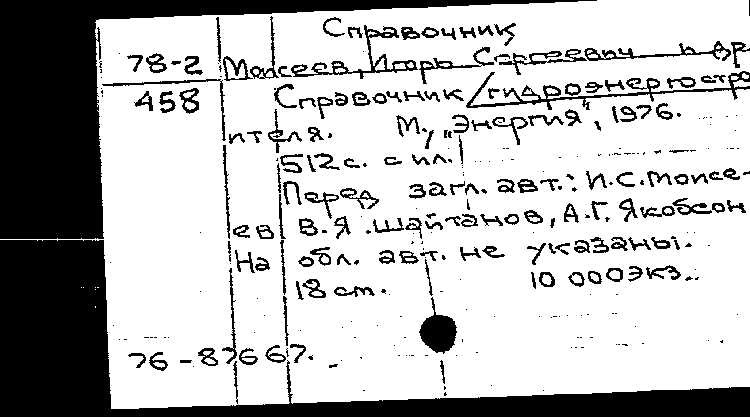 Справочник
78-2 Моисеев, Игорь Сергеевич и др
458 Справочник гидроэнергостро
ителя. М., „Энергия", 1976.
512 с. с ил.
Перед загл. авт.: И.С.Моисе-
ев В.Я.Шайтанов, А.Г.Якобсон
На обл. авт. не указаны.
18 cm. 10 000экз..
76-87667.